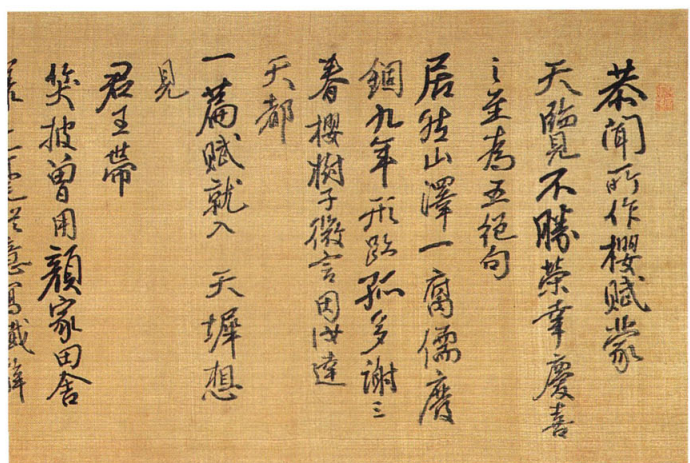 恭聞所作櫻賦蒙
天臨見不勝榮幸慶喜
之至為五絕句
居然山澤一腐儒廢
錮九年形跡孤多謝三
春櫻樹子微言因汝達
天都
一篇賦就入 天墀想
見
君王帶
笑披曾用顏家田舍
意寫